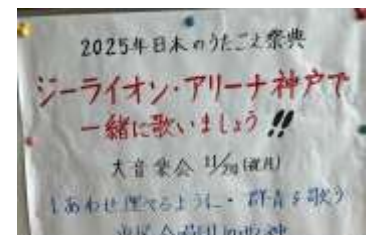 2025年日本のうたごえ祭典
ジーライオン・アリーナ神戸で
一緒に歌いましょう!!
大音楽会 11/
しあわせ運べるように・群青を歌う